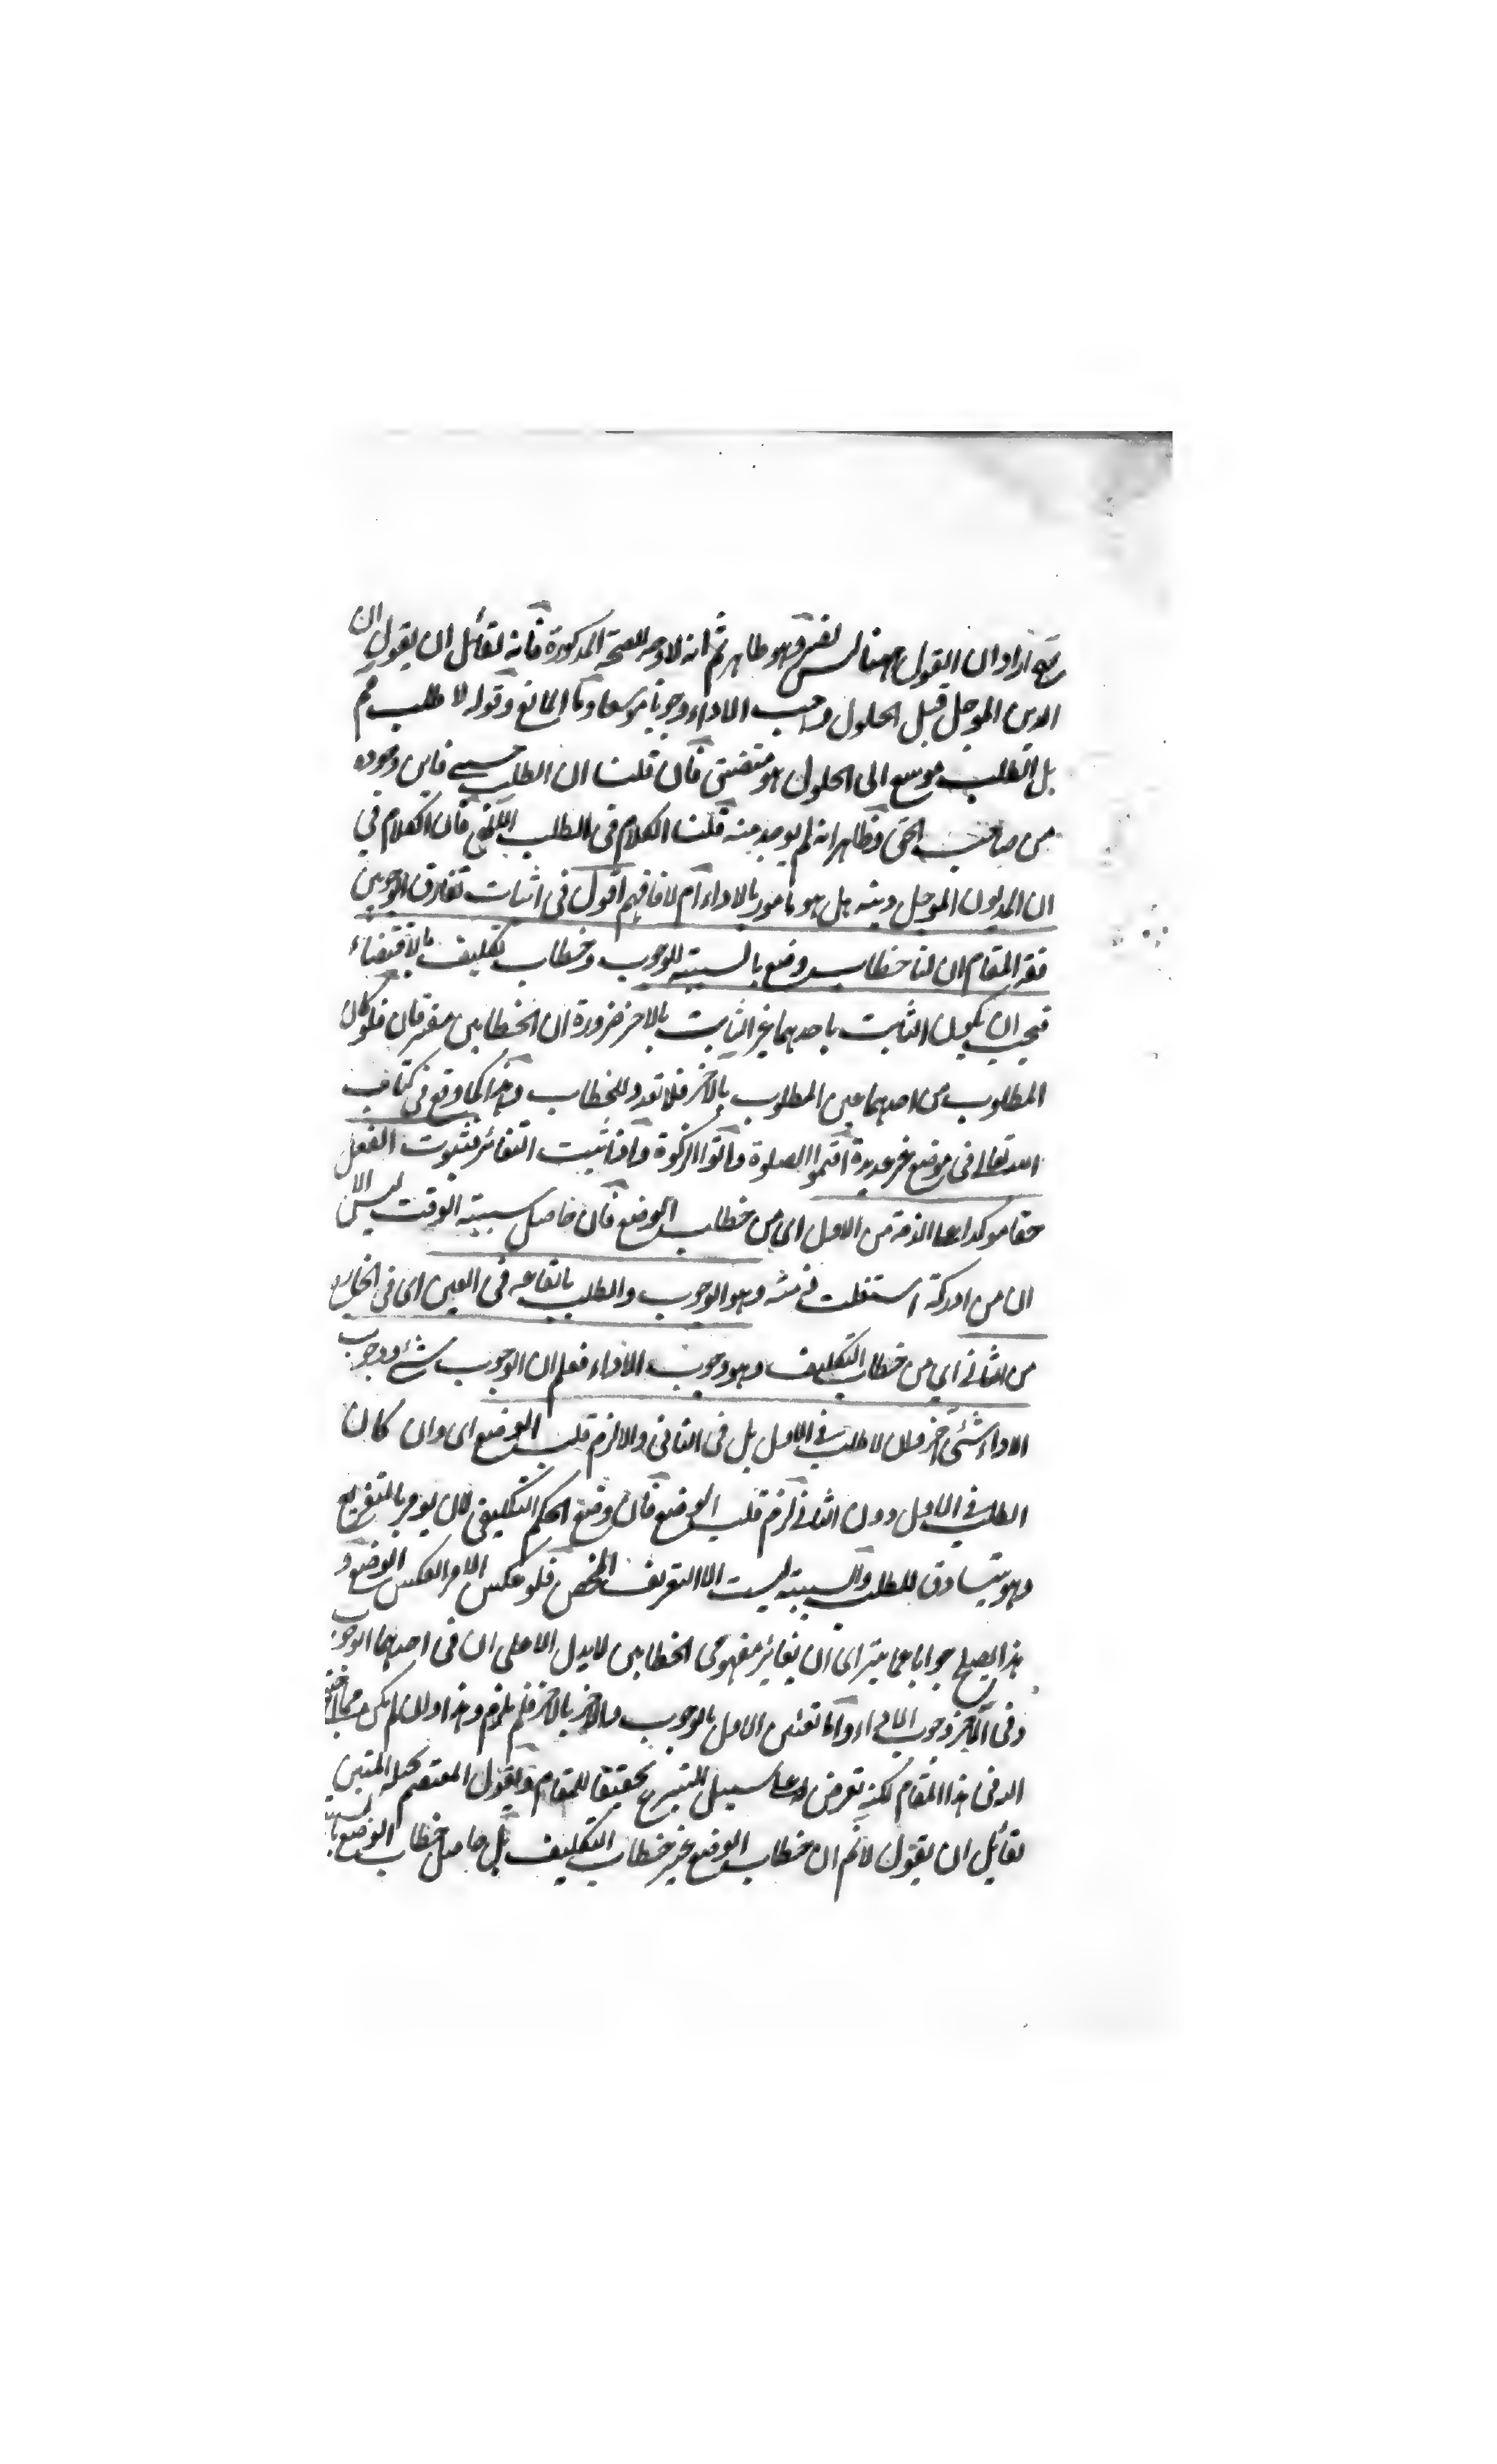 اراد ان القول ههنا ليس بنفس وهو ظاهر ثم انه لا وجه للصحة المذكورة فانه لقائل ان يقول ان
الدين الموجل قبل الحلول واجب الاداء وجوبا موسعا وما المانع وقوله لا طلب مم
بل الطلب موسع الى الحلول هو متضيق فان قلت ان الطلب حسي فاين وجوده
من صاحب الحق وظاهر انه لم يوجد منه قلنا الكلام في الطلب الالهي فان الكلام في
ان المديون الموجل دينه هل هو مامور بالاداء ام لا فافهم اقول في اثبات تفارق الوجوبين
فقه المقام ان لنا خطاب وضع بالسببية للوجوب وخطاب تكليف بالاقتضاء
فيجب ان يكون الثابت باحدهما غير الثابت بالاخر ضرورة ان الخطابين مفترقان فلو كان
المطلوب من احدهما عين المطلوب بالاخر فلا تعدد للخطاب وهذا كما وقع في كتاب
الله تعالى في موضع غير عديدة اقيموا الصلوة واتوا الزكوة واذا ثبت التغائر فثبوت الفعل
حقا موكدا على الذمة من الاول اي من خطاب الوضع فان حاصل سببية الوقت ليس الا
ان من ادركه اشتغلت ذمته وهو الوجوب والطلب بايقاعه في العين اي في الخارج
من الثاني اي من خطاب التكليف وهو وجوب الاداء فعلم ان الوجوب شئ ووجوب
الاداء شئ اخر وان لا طلب في الاول بل في الثاني والا لزم قلب الوضع اي وان كان
الطلب في الاول دون الثاني لزم قلب الوضع فان وضع الحكم التكليفي لان يومر بالتفريع
وهو يتساوق للطلب والسببية ليست الا التعريف المحض فلو عكس الامر انعكس الوضع و
هذا يصلح جوابا عما يترااى ان تغائر مفهومي الخطابين لا يدل الا على ان في احدهما الوجوب
وفي الاخر وجوب الاداء واما تعين الاول بالوجوب والاخر بالاخر فلم يلزم وهذا وان لم يكن مما
اليه في هذا المقام لكنه تعرض له على سبيل التبرع تحقيقا للمقام ويقول المعتصم بحبله المتين
لقائل ان يقول لا نم ان خطاب الوضع غير خطاب التكليف بل حاصل خطاب الوضع بالسببية